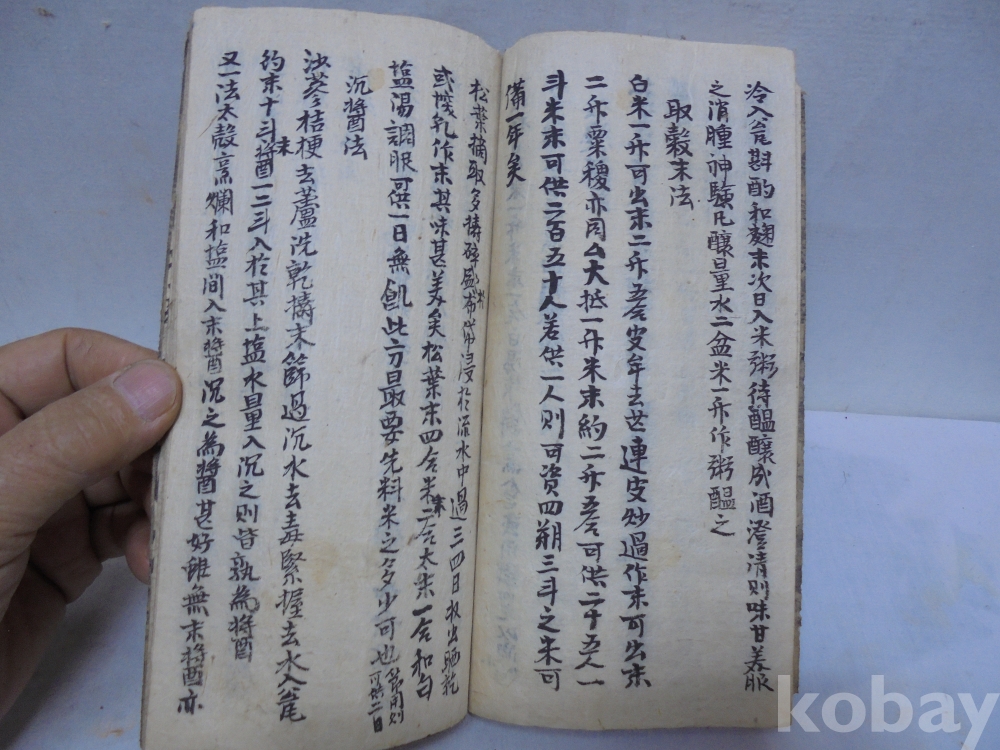 冷入瓮斟酌和麴末次日入米粥待醞釀成酒澄清則味甘美服
之消腫神驗凡釀量水二盆米一升作粥醞之
取穀末法
白米一升可出末二升五合皮牟去芒連皮炒過作末可出末
二升粟稷亦同以大抵一升米末約二升五合可供二十五人一
斗米末可供二百五十人若供一人則可資四朔三斗之米可
備一年矣
松葉摘取多擣碎盛布帒浸於流水中過三四日收出晒乾
或搗乳作末其味甚美矣松葉末四合米末二合太末一合和勻
塩湯調服可供一日無飢此方最要先料米之多少可也 常用則可供二日
沉醬法
沙蔘桔梗去蘆洗乾擣末篩過沉水去毒緊握去水入瓮
約末十斗末醬一二斗入於其上塩水量入沉之則皆孰為醬
又一法太殼烹爛和塩間入末醬沉之為醬甚好雖無末醬亦
kobay